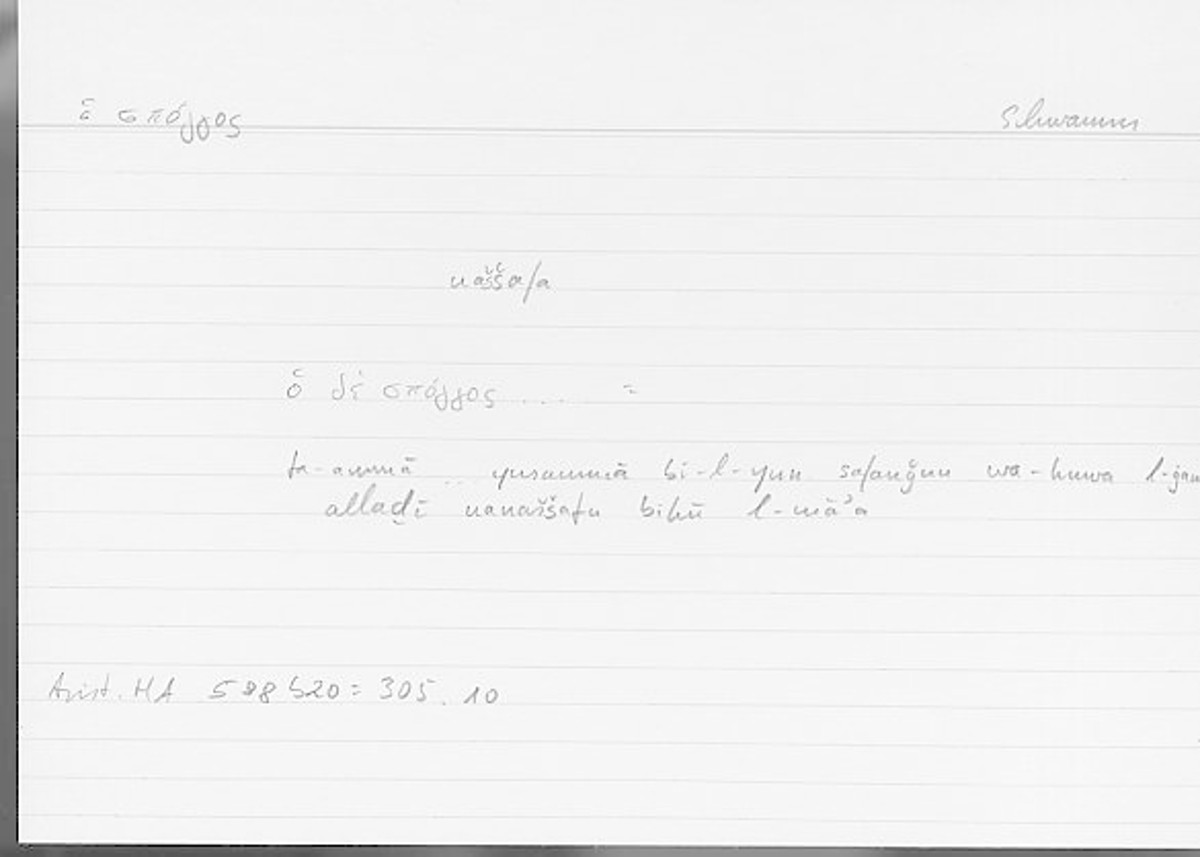 ὁ σπόγγος Schwamm
naššafa
ὁ δὲ σπόγγος ... =
fa-ammā .. yusammā bi-l-yun safanǧun wa-huwa
allaḏī nanaššafu bihū l-māʾa
Arist. HA 588b20 = 305.10